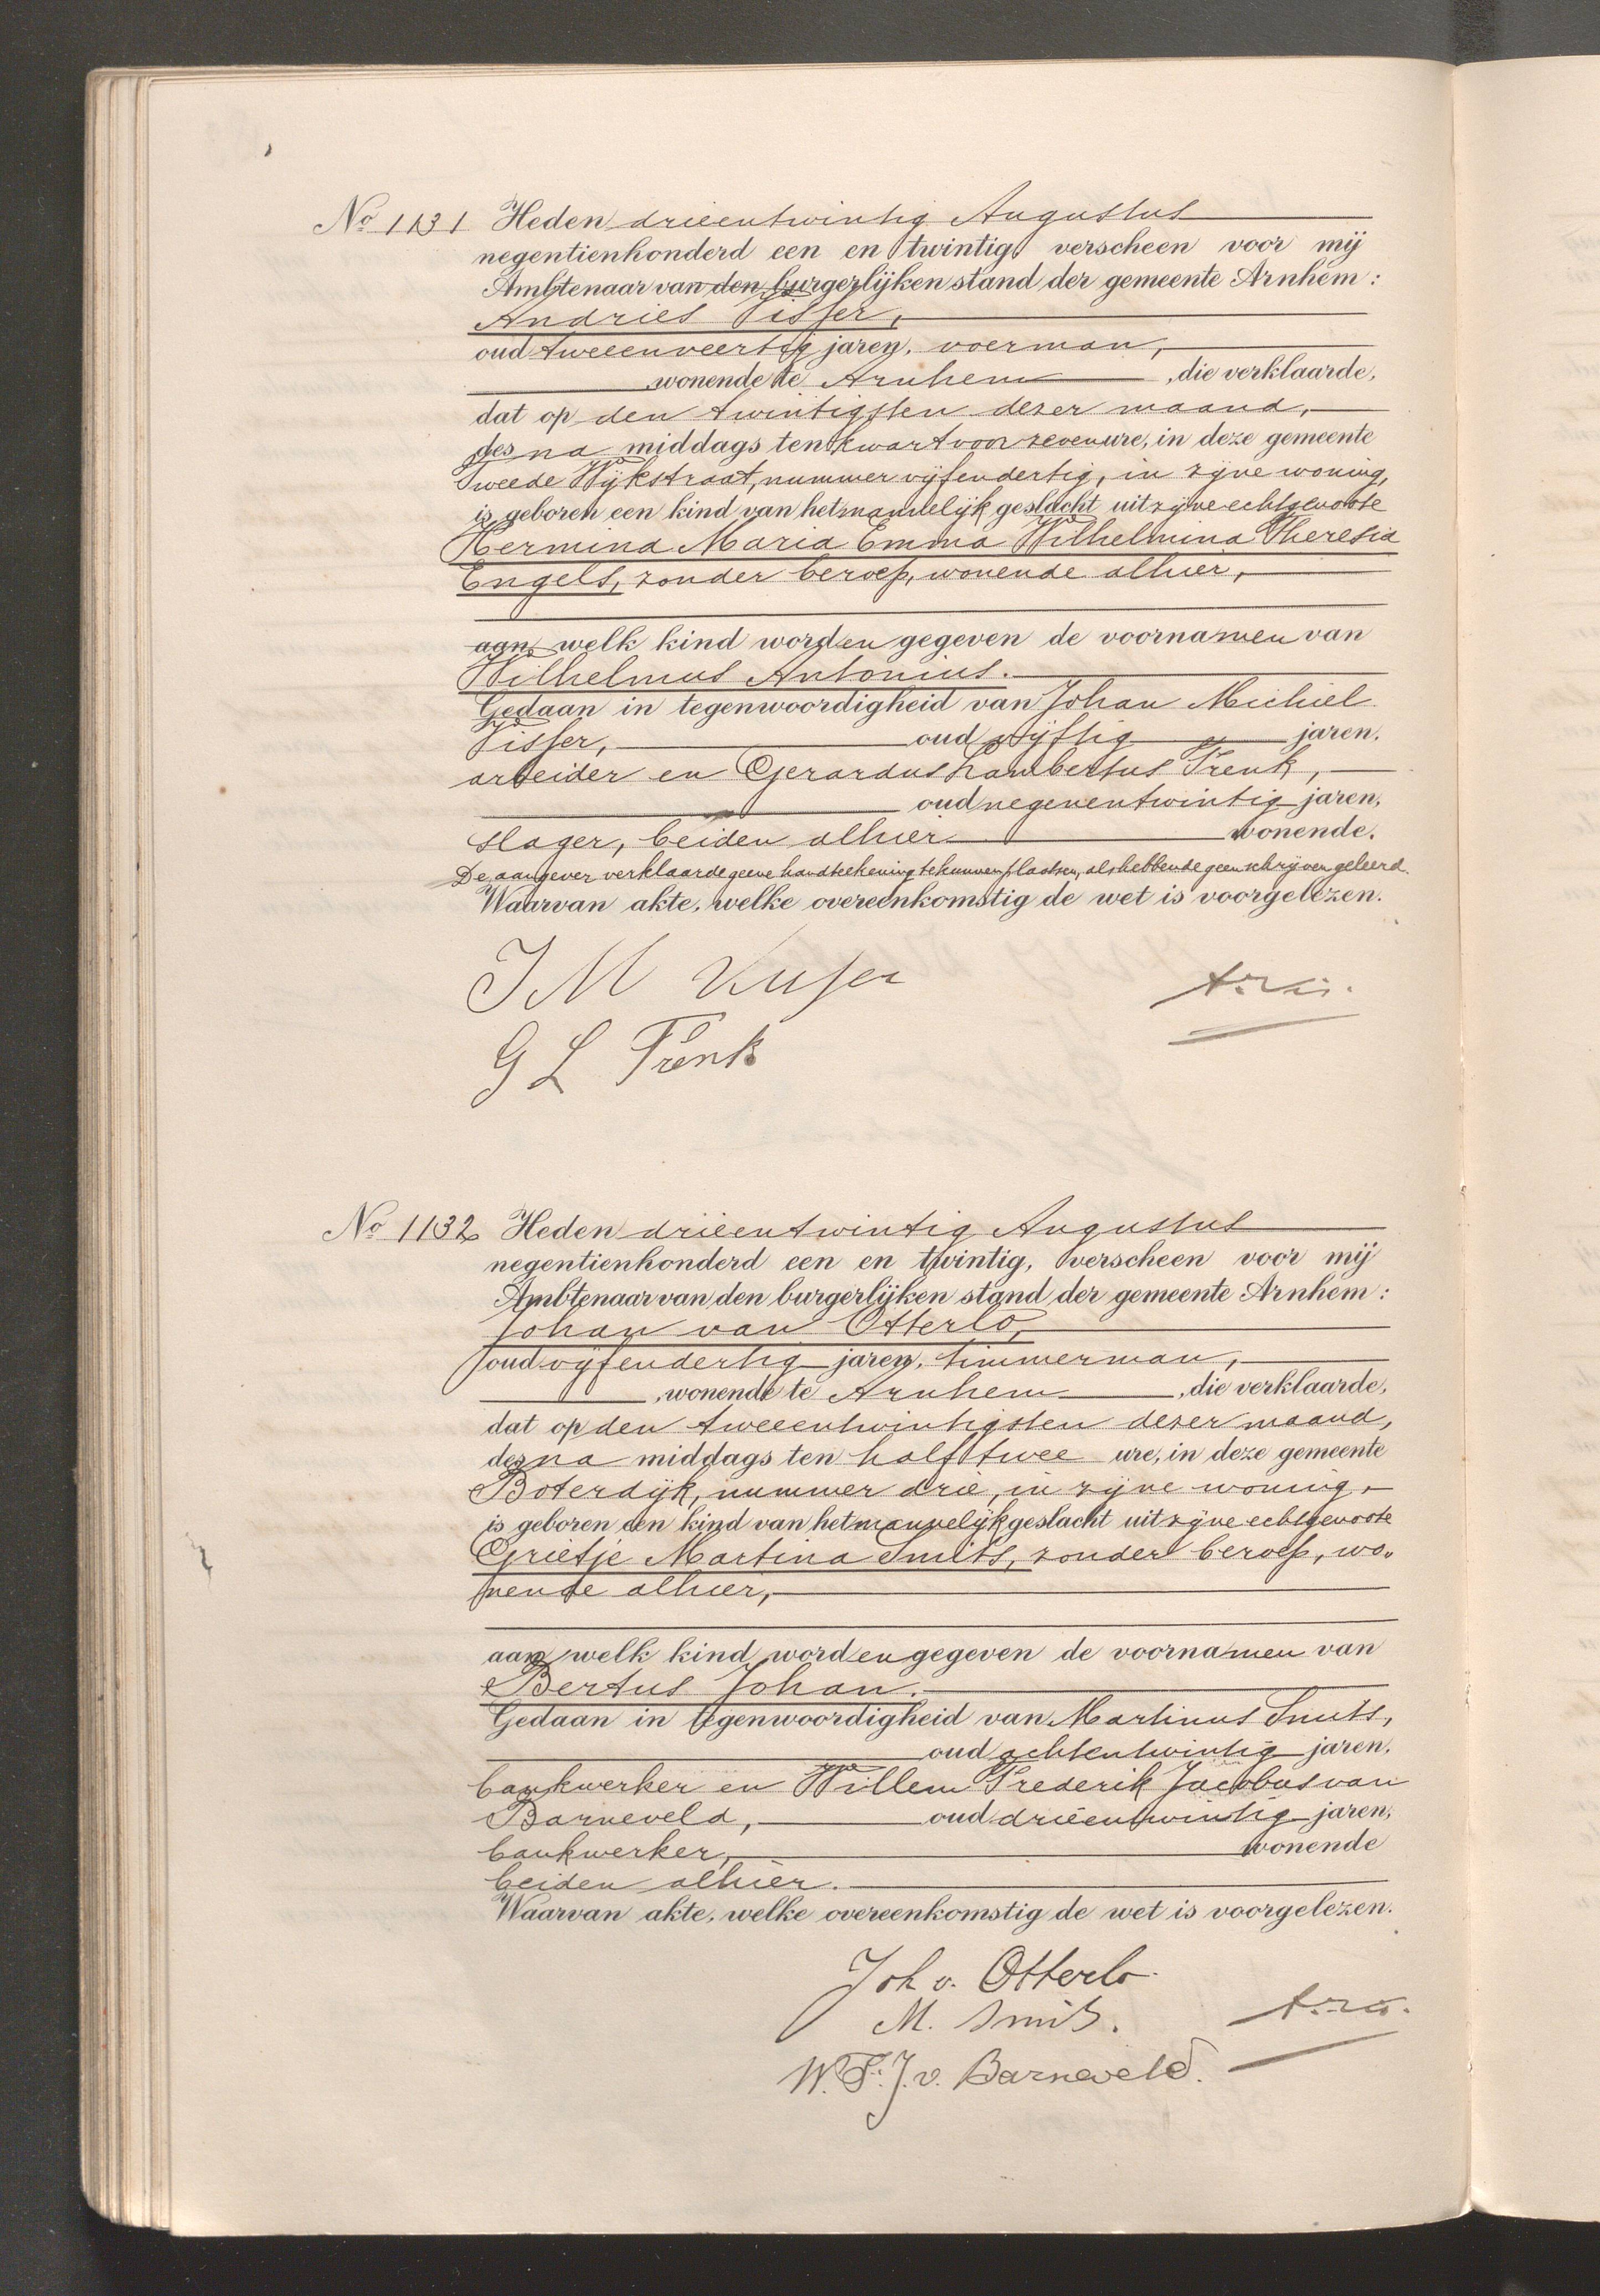 No 1131 Heden drieentwintig Augustus
negentienhonderd een en twintig, verscheen voor mij
Ambtenaar van den burgerlijken stand der gemeente Arnhem:
Andries Visser,
oud tweeenveertig jaren, voerman,
, wonende te Arnhem , die verklaarde,
dat op den twintigsten dezer maand,
des na middags ten kwart voor zeven ure, in deze gemeente
Tweede Wijkstraat, nummer vijfendertig, in zijne woning,
is geboren een kind van het mannelijk geslacht uit zijne echtgenoote
Hermina Maria Emma Wilhelmina Theresia
Engels, zonder beroep, wonende alhier,
aan welk kind worden gegeven de voornamen van
Wilhelmus Antonius.
Gedaan in tegenwoordigheid van Johan Michiel
Visser, oud vijftig jaren,
arbeider en Gerardus Lambertus Frenk,
oud negenentwintig jaren,
slager, beiden alhier wonende.
De aangever verklaarde geene handteekening te kunnen plaatsen, als hebbende geen schrijven geleerd.
Waarvan akte, welke overeenkomstig de wet is voorgelezen.
J M Visser
G L Frenk
No 1132 Heden drieentwintig Augustus
negentienhonderd een en twintig, verscheen voor mij
Ambtenaar van den burgerlijken stand der gemeente Arnhem:
Johan van Otterlo,
oud vijfendertig jaren, timmerman,
, wonende te Arnhem , die verklaarde,
dat op den tweeentwintigsten dezer maand,
des na middags ten half twee ure, in deze gemeente
Boterdijk, nummer drie, in zijne woning,
is geboren een kind van het mannelijk geslacht uit zijne echtgenoote
Grietje Martina Smits, zonder beroep, wo„
nende alhier,
aan welk kind worden gegeven de voornamen van
Bertus Johan.
Gedaan in tegenwoordigheid van Martinus Smits,
oud achtentwintig jaren,
bankwerker en Willem Frederik Jacobus van
Barneveld, oud drieentwintig jaren,
bankwerker, wonende
beiden alhier.
Waarvan akte, welke overeenkomstig de wet is voorgelezen.
Joh v. Otterlo
M. Smits.
W. F. J. v. Barneveld.